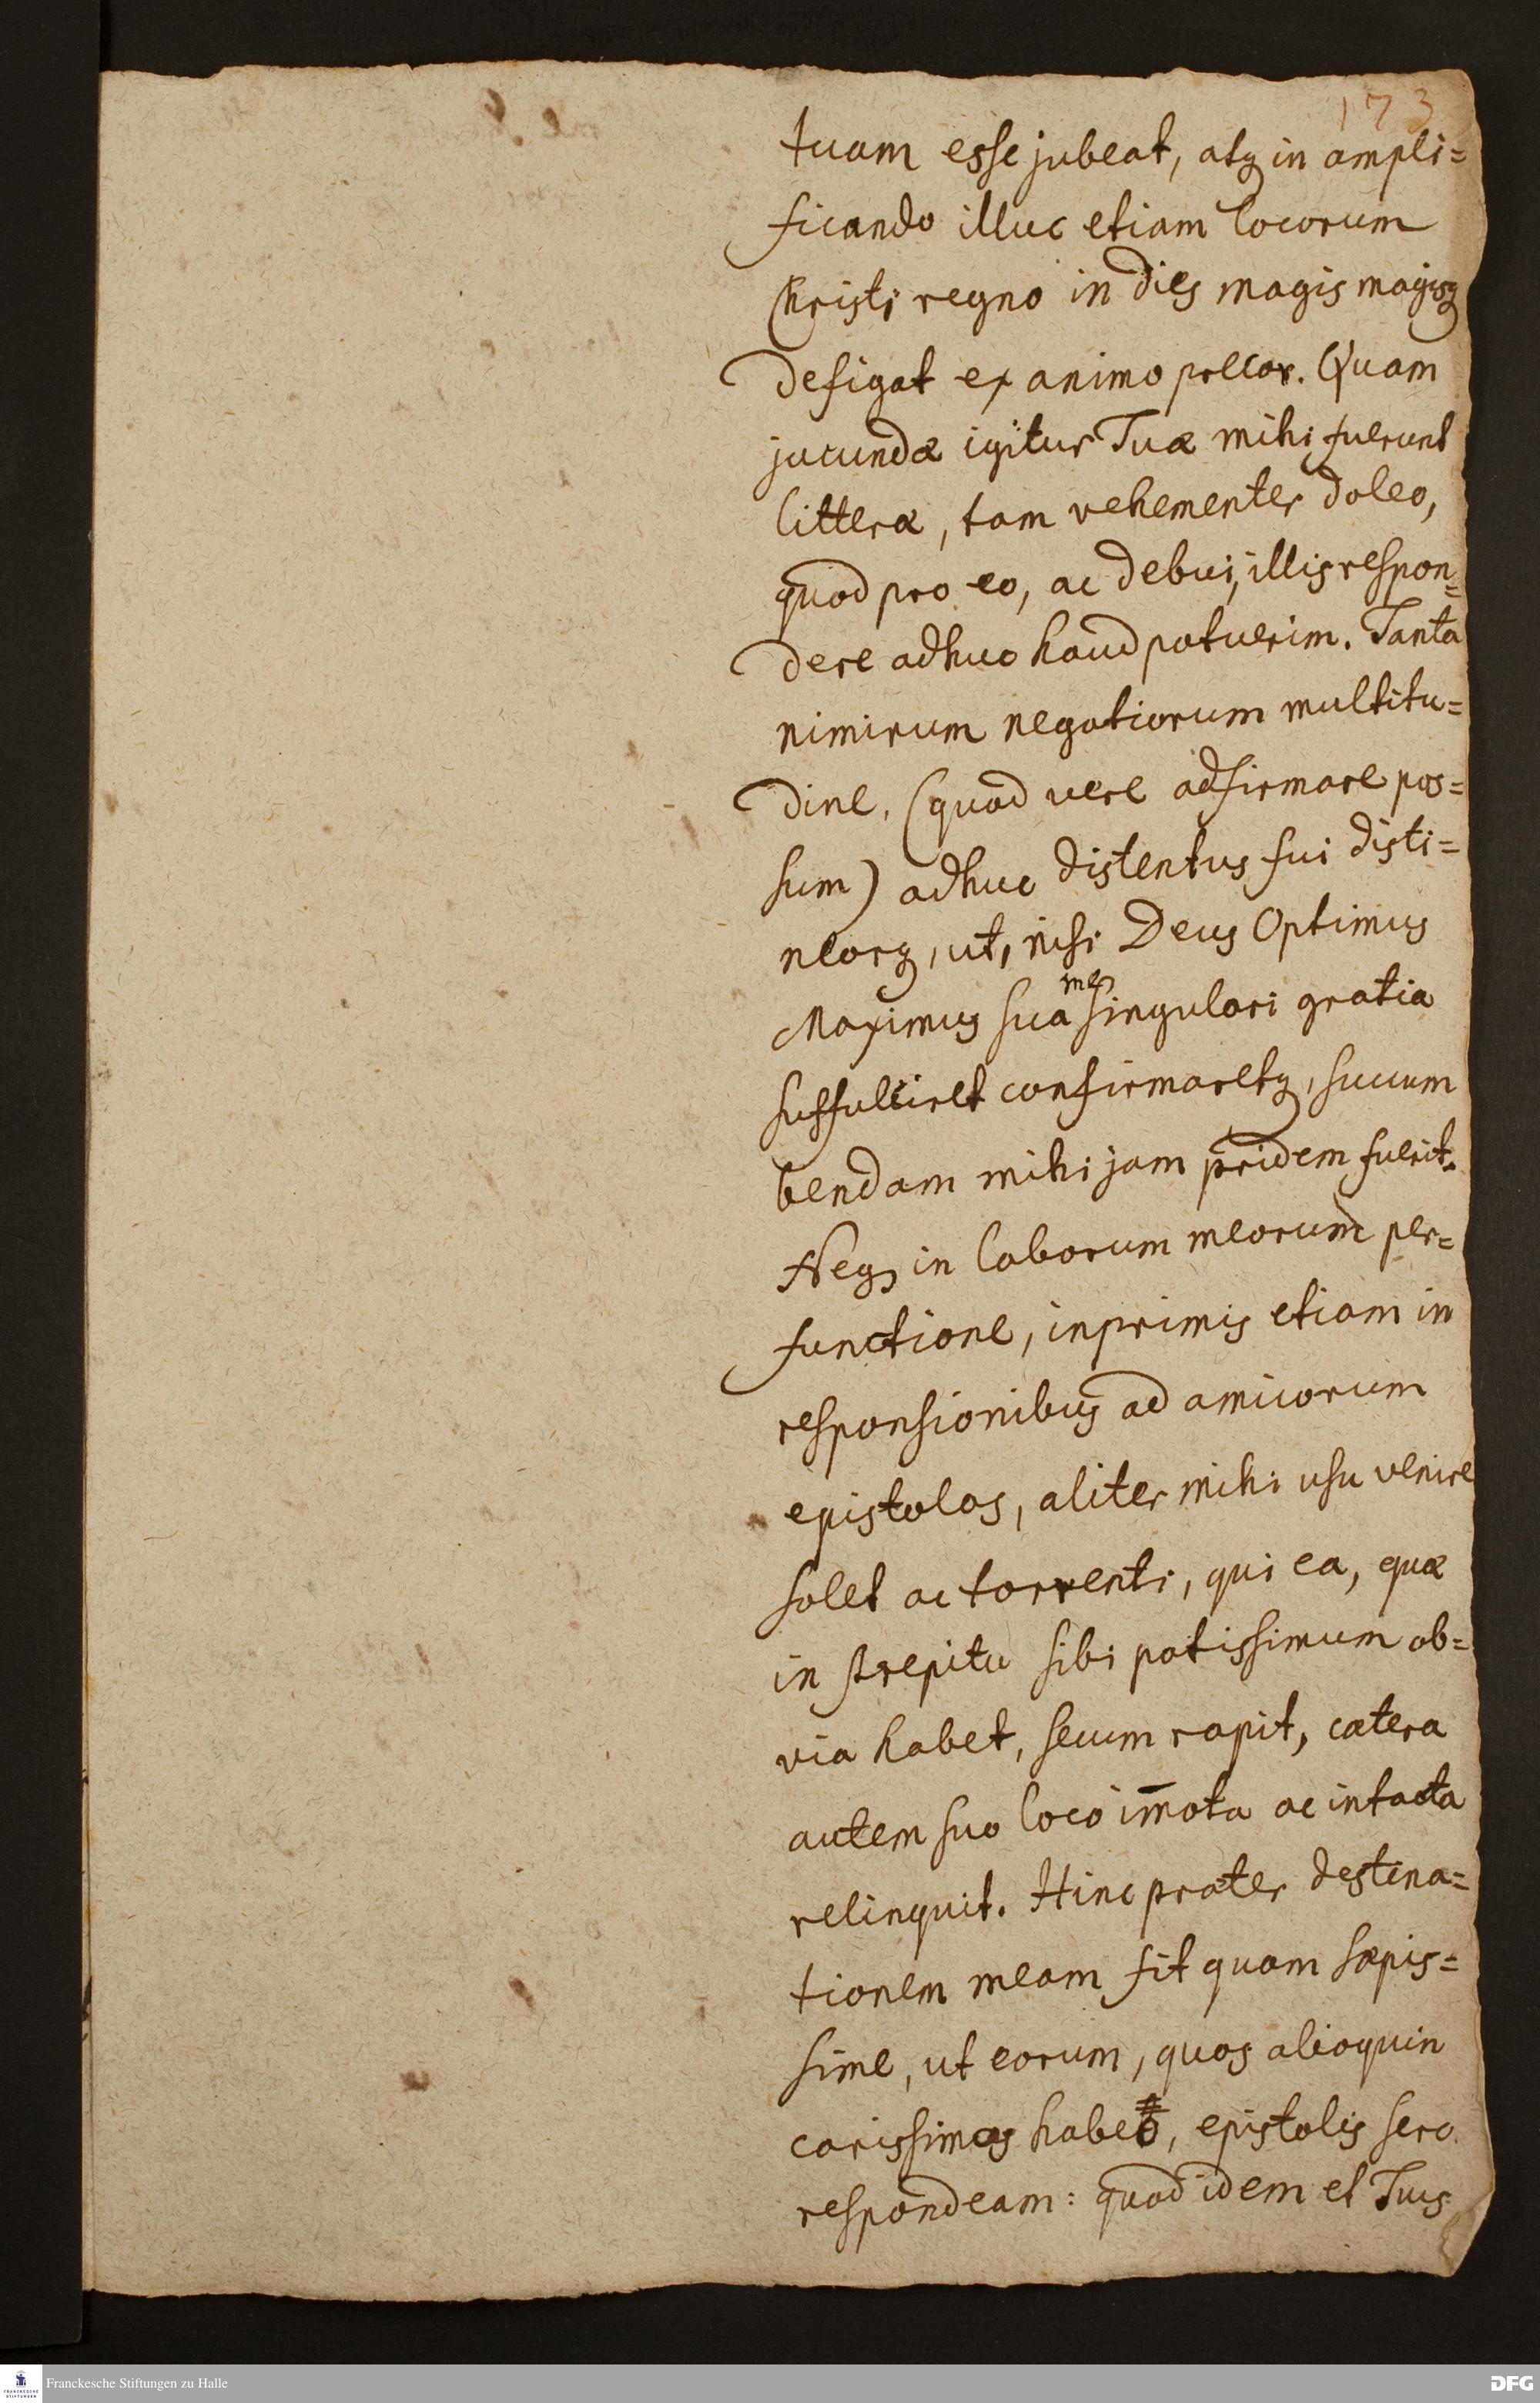 173
tuam esse jubeat, atq in ampli=
ficando illuc etiam locorum
Christi regno in dies magis magisq
defigat ex animo precor. Quam
jucundæ igitur Tuæ mihi fuerunt
litteræ, tam vehementer doleo,
quod pro eo, ac debui, illis respon=
dere adhuc haud potuerim. Tanta
nimirum negotiorum multitu=
dine, (quod vere adfirmare pos=
sum) adhuc distentus fui disti=
neorq, ut, nisi Deus Optimus
me
Maximus sua singulari gratia
suffulciret confirmaretq, succum
bendam mihi jam pridem fuerit.
Neq in laborum meorum per=
functione, inprimis etiam in
responsionibus ad amicorum
epistolas, aliter mihi usu venire
solet ac torrenti, qui ea, quæ
in strepitu sibi potissimum ob=
via habet, secum rapit, cætera
autem suo loco im̄ota ac intacta
relinquit. Hinc præter destina=
tionem meam fit quam sæpis=
sime, ut eorum, quos alioquin
carissimos habeo, epistolis sero
respondeam: quod idem et Tuis
Franckesche Stiftungen zu Halle
DFG